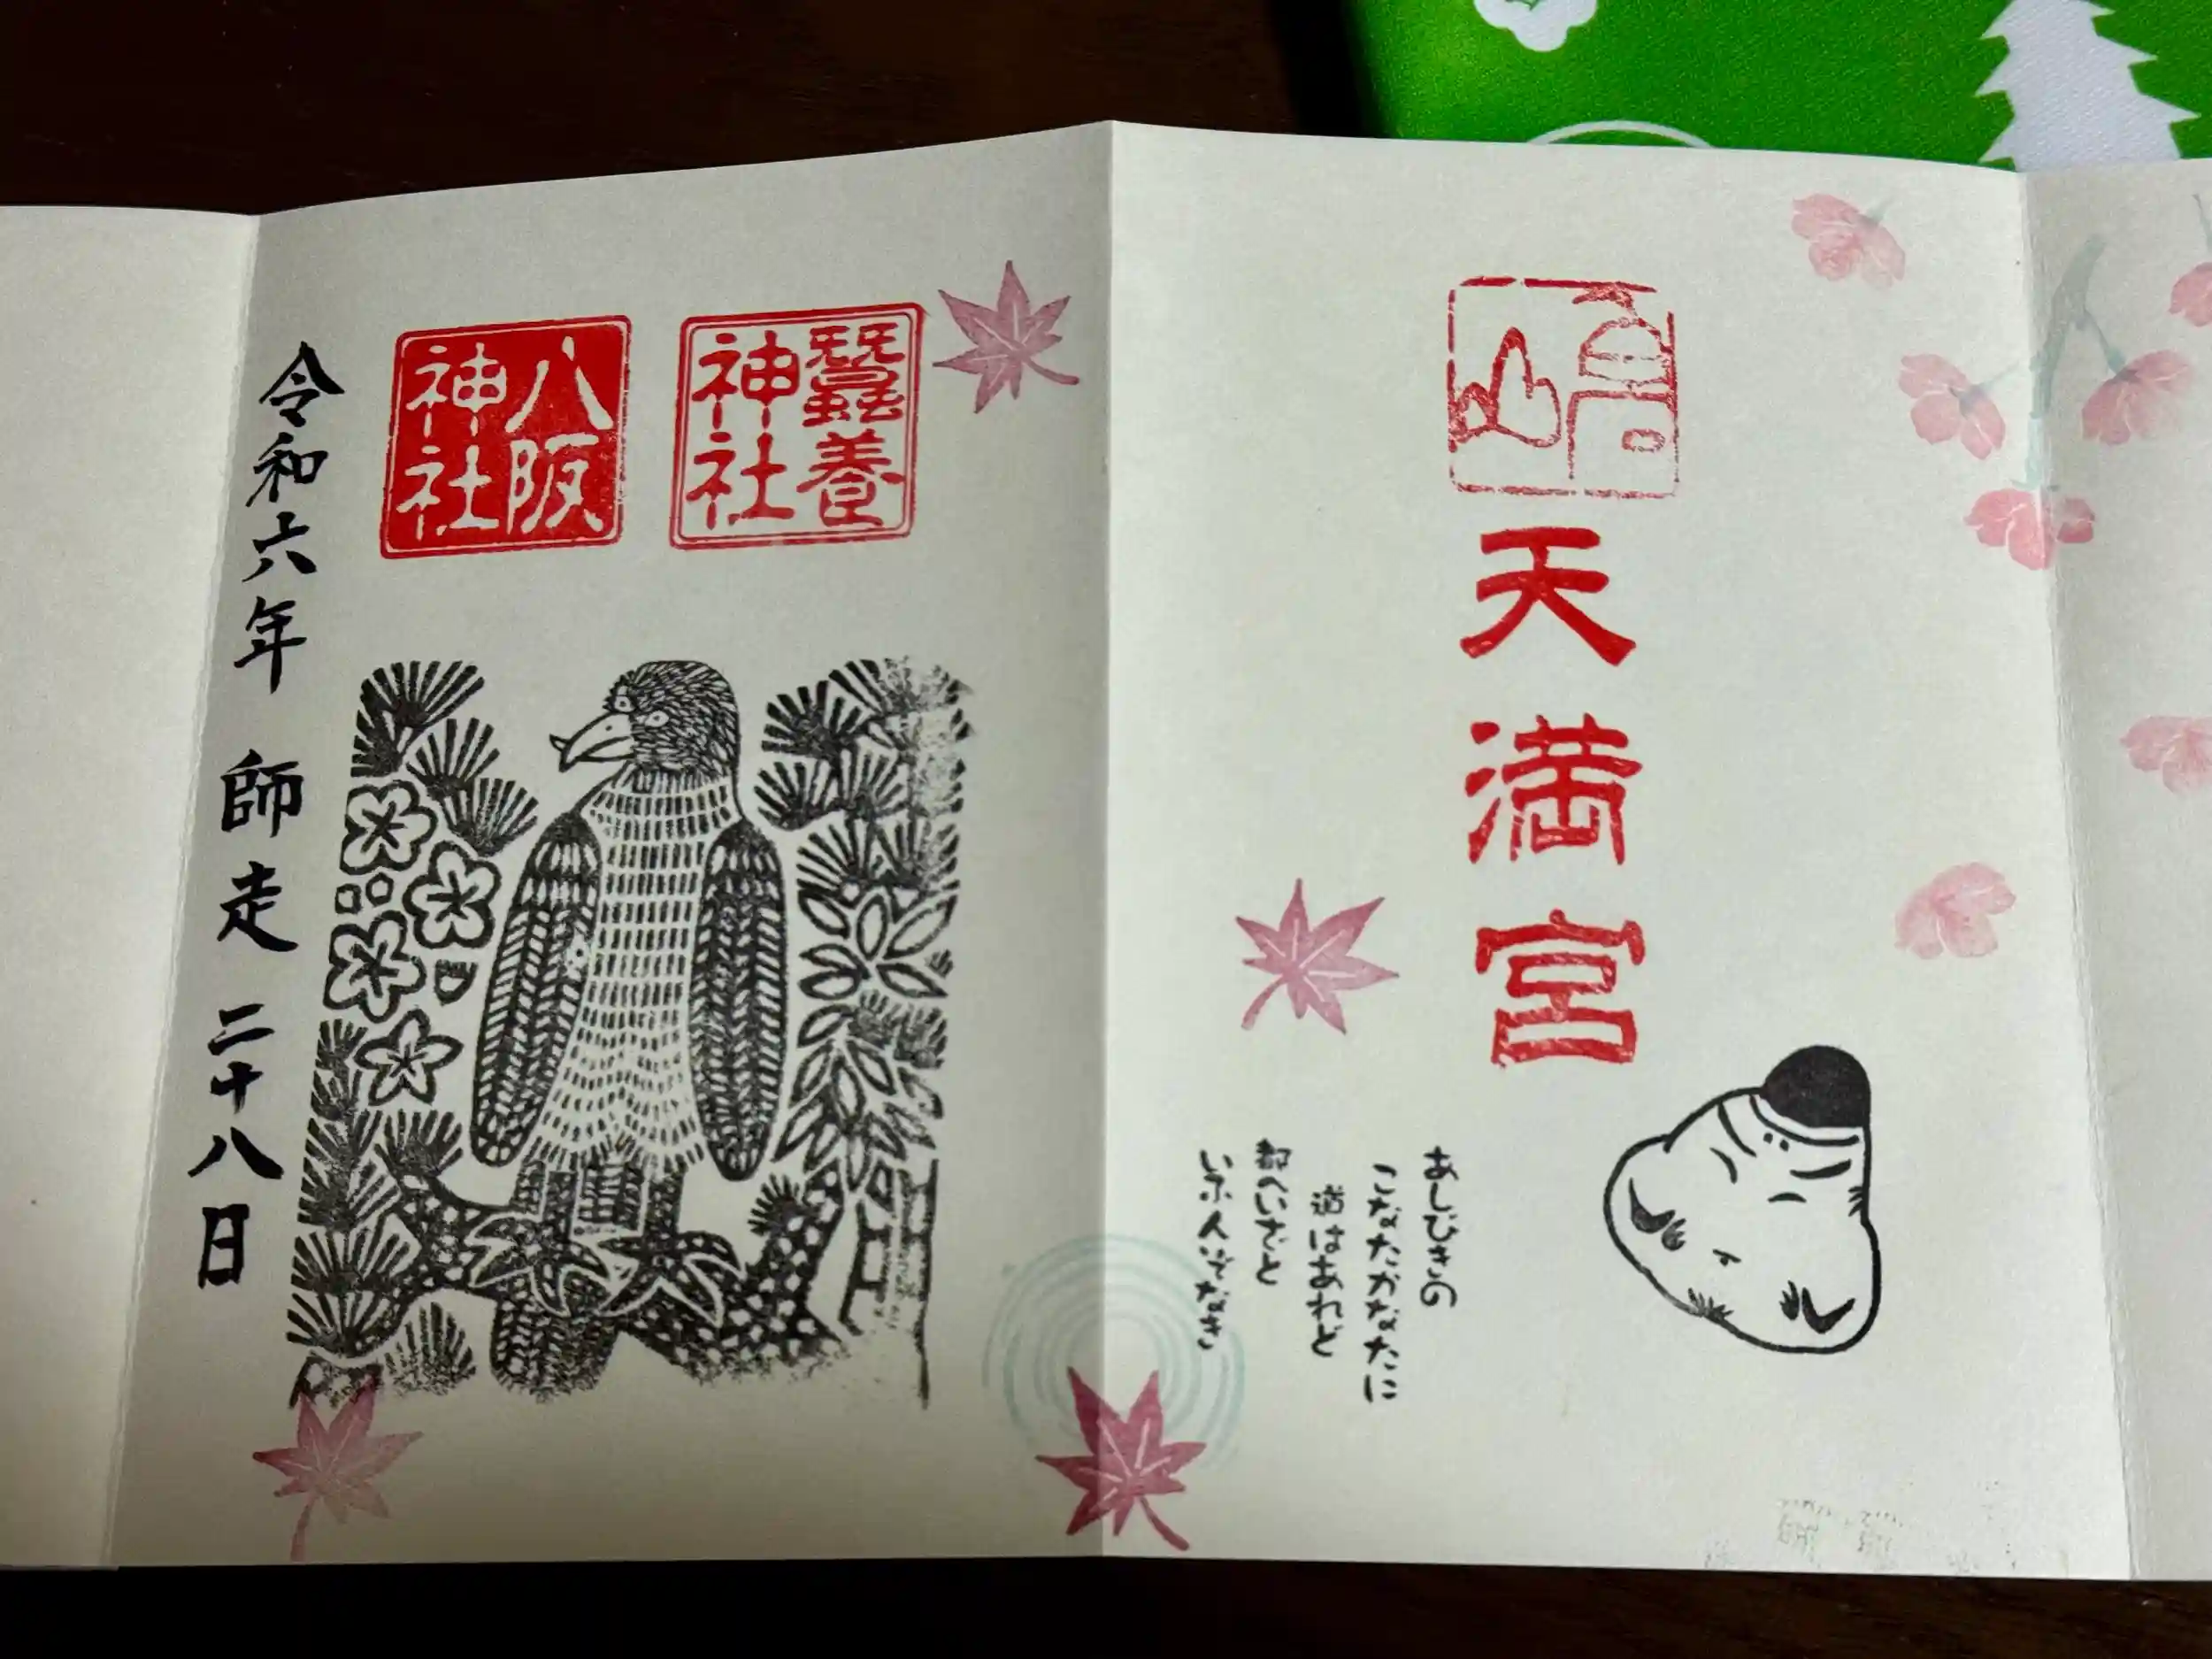 天満宮
あしびきの
こなたかなたに
道はあれど
都へいざと
いふ人ぞなき
蠶養
神社
八阪
神社
令和六年 師走 二十八日